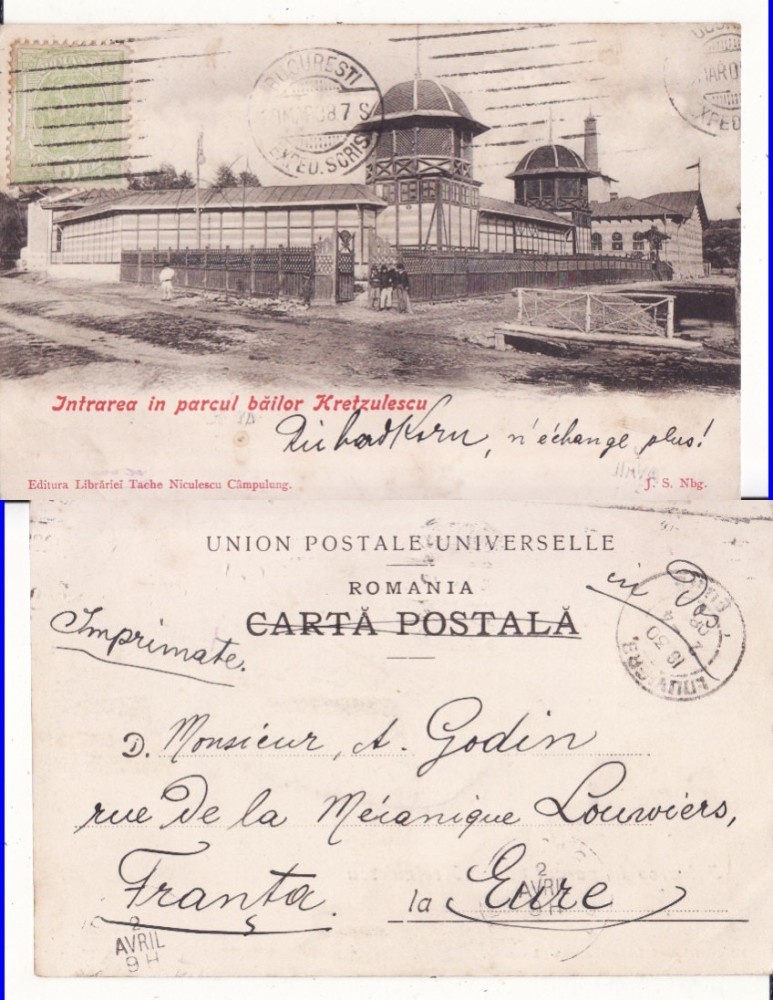 BUCURESTI
EXPED. SCRIS
Intrarea in parcul băilor Kretzulescu
Richard Korn, n'échange plus!
Editura Librăriei Tache Niculescu Câmpulung.
J. S. Nbg.
UNION POSTALE UNIVERSELLE
ROMANIA
CARTĂ POSTALĂ
Imprimate.
LOUVIERS
EURE
16 30
D. Monsieur, A. Godin
rue De la Mécanique Louviers,
Franța. la Eure
2
AVRIL
9 H
2
AVRIL
9 H